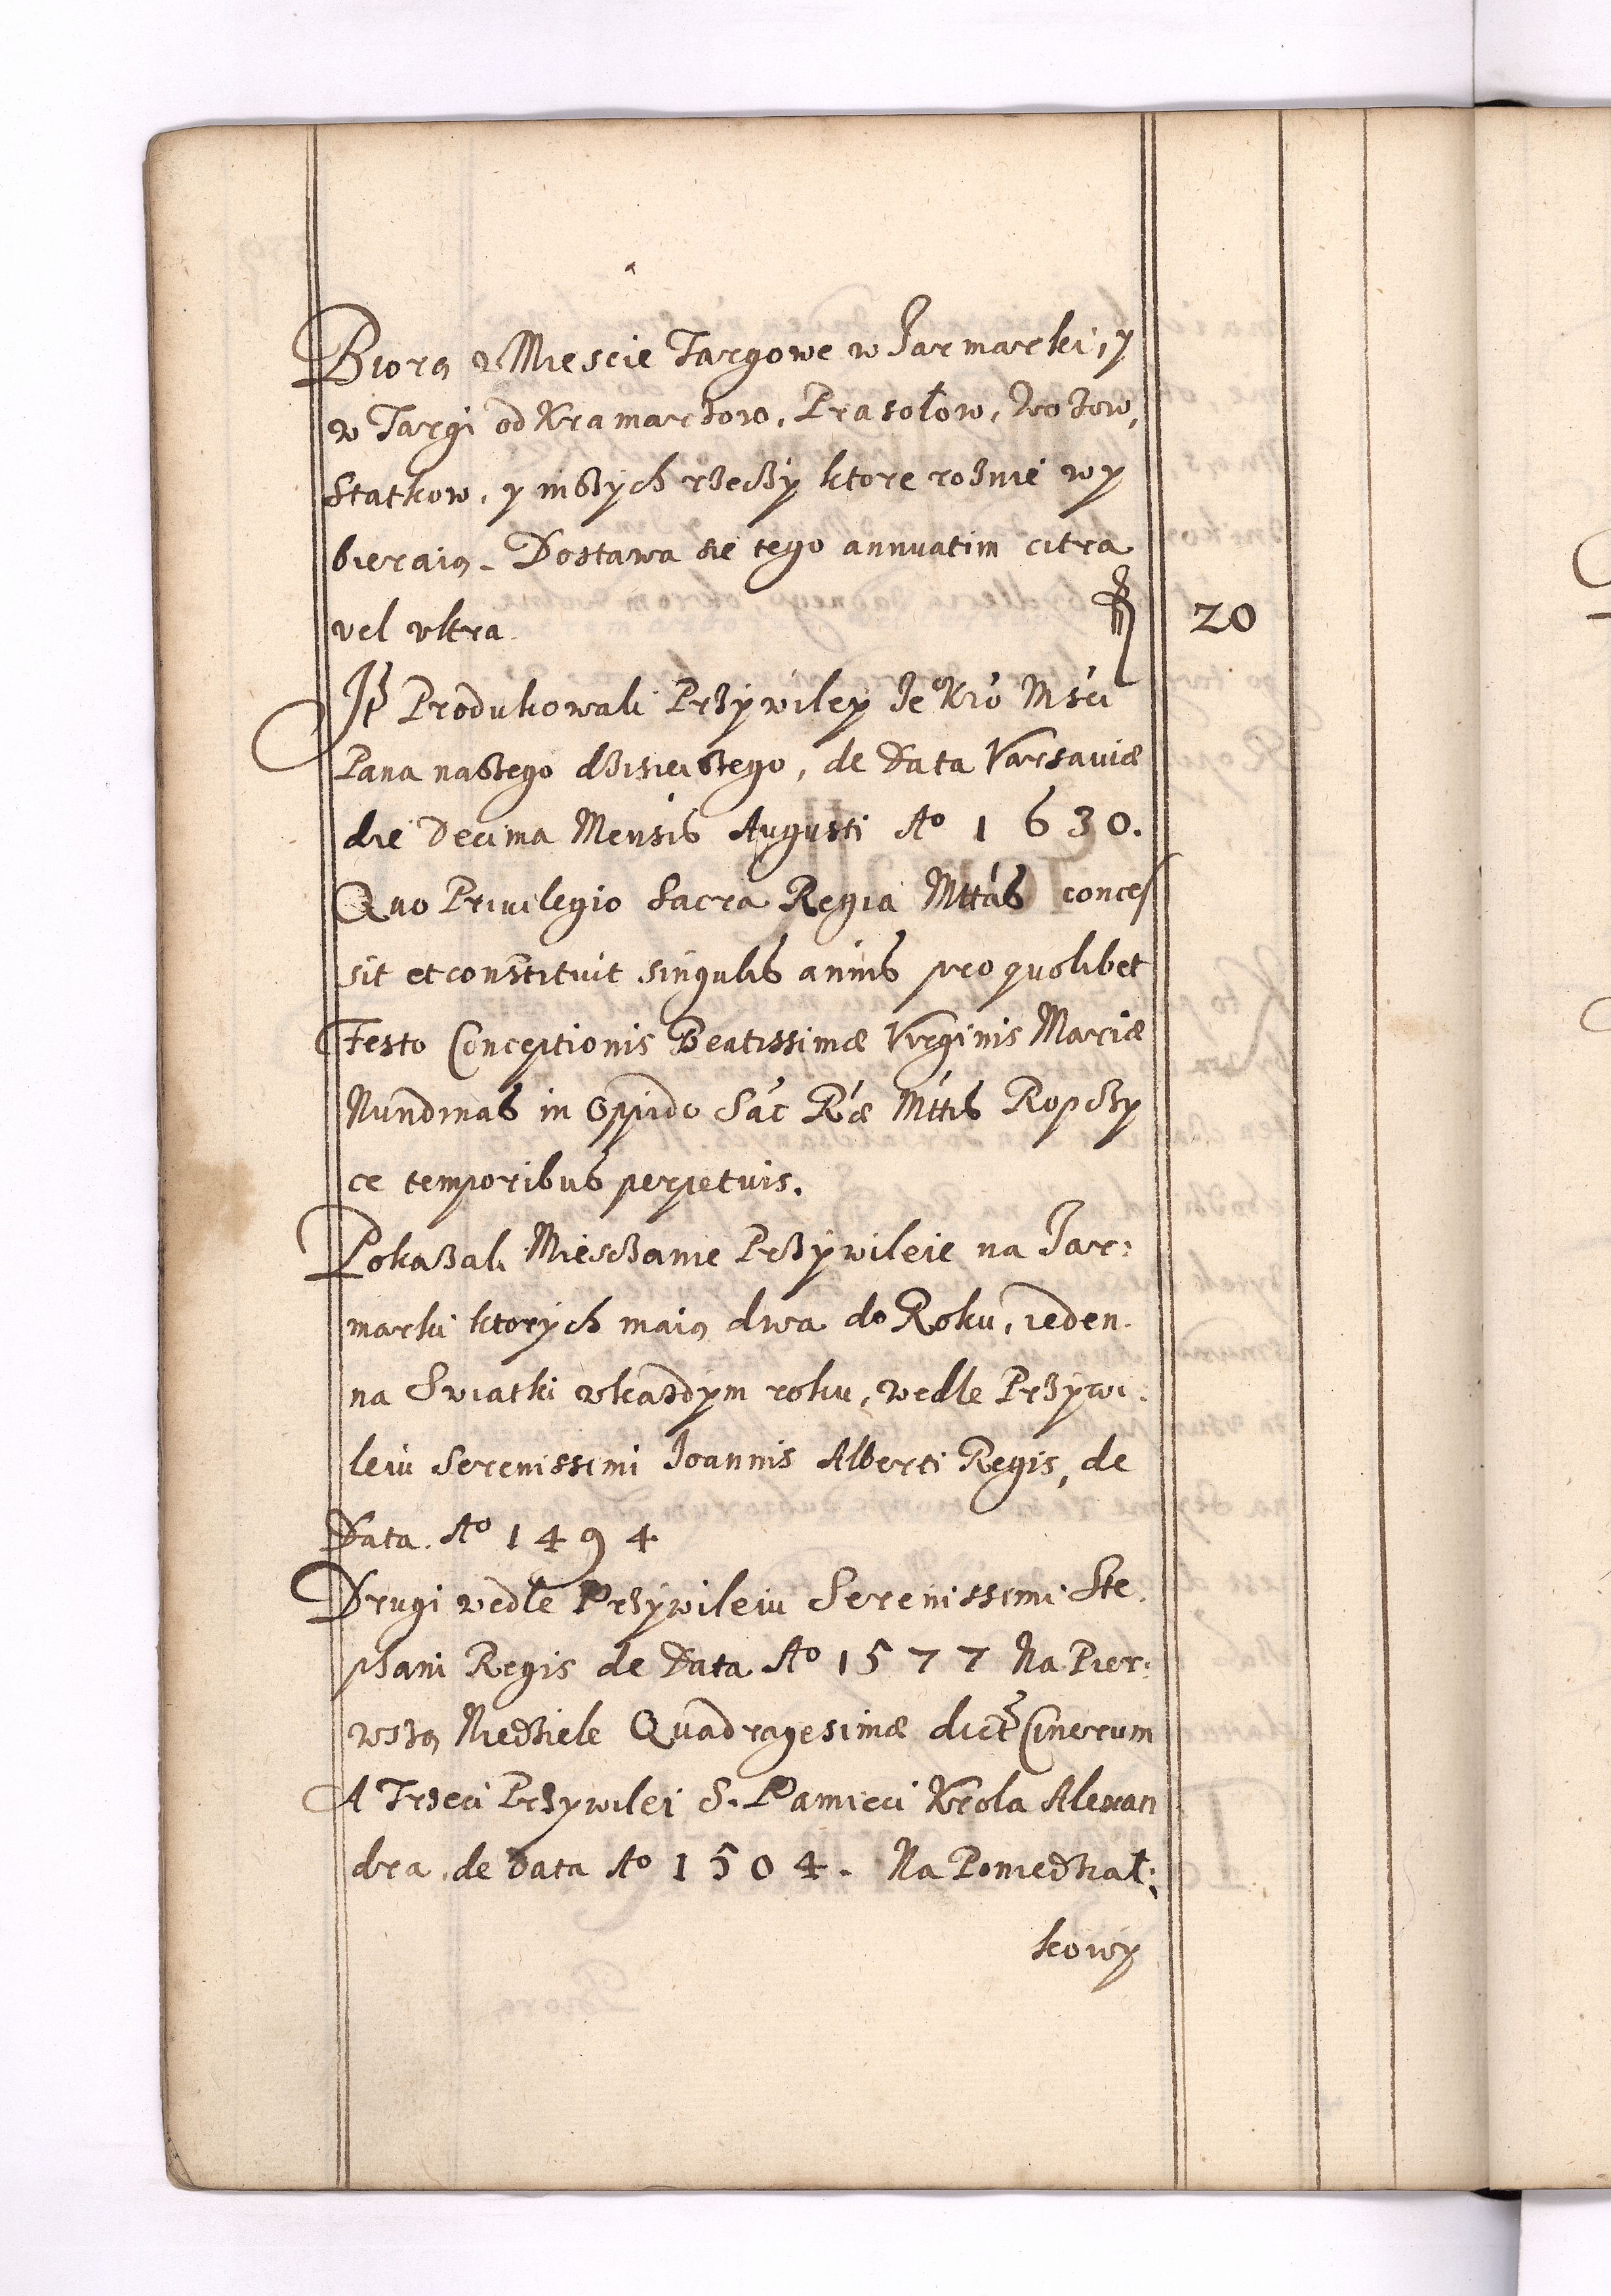 Biorą w Miescie Targowe w Jarmarki, y
w Targi od Kramarzow, Prasołow, Wozow,
Statkow, y inszych rzeczy ktore roznie wy
bieraią. Dostawa sie tego annuatim citra
vel ultra. 20
Produkowali Przywiley Je Kró Mści
Pana naszego dzisieiszego, de Data Varsaviæ
die Decima Mensis Augusti Ao 1630.
Quo Privilegio Sacra Regia Mttás conces
sit et constituit singulis annis pro quolibet
Festo Conceptionis Beatissimæ Virginis Mariæ
Nundinas in Oppido Sác Ráe Mttis Ropczy
ce temporibus perpetuis.
Pokazali Mieszczanie Przywileie na Jar:
marki ktorych maią dwa do Roku, ieden
na Swiatki w kazdym roku, wedle Przywi
leiu Serenissimi Joannis Alberti Regis, de
Data. Ao 1494
Drugi wedle Przywileiu Serenissimi Ste
phani Regis de Data Ao 1577 Na Pier:
wszą Niedziele Quadragesimæ dict Cinerum
A Trzeci Przywilei S. Pamieci Krola Alexan
dra, de Data Ao 1504. Na Poniedział:
kowy